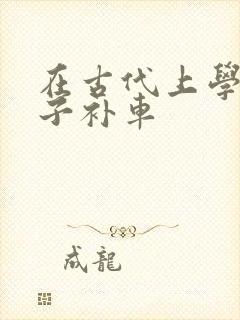 在古代上學
子补車
成龍